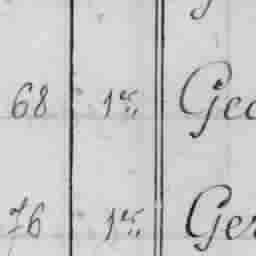 68 1er Geo
76 1er Ger